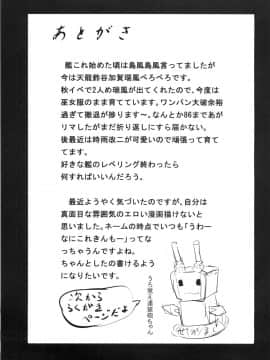 あとがき
艦これ始めた頃は島風島風言ってましたが
今は天龍鈴谷加賀瑞鳳ぺろぺろです。
秋イベで2人め瑞鳳が出てくれたので、今度は
巫女服のまま育てています。ワンパン大破余裕
過ぎて撤退が捗りますー。なんとか86まであが
リマしたがまだ折り返しにすら届かない。
後最近は時雨改二が可愛いので頑張って育て
てます。
好きな艦のレベリング終わったら
何すればいいんだろう。
最近ようやく気づいたのですが、自分は
真面目な雰囲気のエロい漫画描けないと
思いました。ネームの時点でいつも「うわー
なにこれきんもーっ」てな
っちゃうんですよね。
ちゃんとしたの書けるよう
になりたいです。
うろ覚え連装砲ちゃん
次から
らくがき
ページだよ